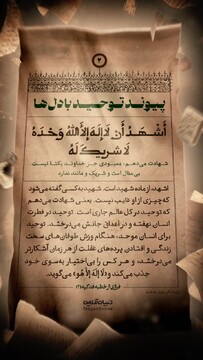 ۲
پیوند توحید با دل‌ها
أَشْهَدُ أَن لَا إِلَهَ إِلَّا اللهُ وَحْدَهُ
لَا شَرِیكَ لَهُ
شهادت می‌دهم، معبودی جز خداوند یکتا نیست،
بی‌مثال است و شریک و مانند ندارد
اشهد از ماده شهید است. شهید به کسی گفته می‌شود
که چیزی از او غایب نیست. یعنی شهادت می‌دهم
که توحید در کل عالم جاری است. توحید در فطرت
انسان نهفته و در اعماق جانش می‌درخشد. توحید
برای انسان موحد، هنگام وزش طوفان‌های سخت
زندگی و افتادن پرده‌های غفلت از هر زمان آشکارتر
می‌درخشد، و هر کس را بی‌اختیار به‌سوی خود
جذب می‌کند و «لا إله إلّا هو» می‌گوید.